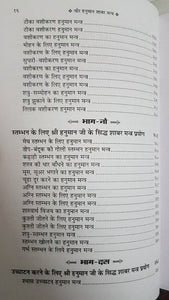 १६ * वीर हनुमान शाबर मन्त्र *
टीका वशीकरण हनुमान मन्त्र
वशीकरण के लिए हनुमान मन्त्र
मोहन के लिए हनुमान मन्त्र
वशीकरण के लिए हनुमान मन्त्र
सुपारी-वशीकरण हनुमान मन्त्र
वशीकरण का हनुमान मन्त्र
वशीकरण के लिए हनुमान मन्त्र
वशीकरण का हनुमान मन्त्र
सम्मोहन के लिए हनुमान मन्त्र
शत्रु झुकाने के लिए हनुमान मन्त्र
तिलक वशीकरण हनुमान मन्त्र
भाग-नौ
स्तम्भन के लिए श्री हनुमान जी के सिद्ध शाबर मन्त्र प्रयोग
मेघ स्तम्भन के लिए हनुमान मन्त्र
तोप-बन्दूक की गोली स्तम्भन हनुमान मन्त्र
कढ़ाही स्तम्भन के लिए हनुमान मन्त्र
शस्त्र की धार बाँधने का हनुमान मन्त्र
मूस, सुअर भगाने का हनुमान मन्त्र
चूहा दूर करने का हनुमान मन्त्र
अग्नि स्तम्भन का हनुमान मन्त्र
अग्नि स्तम्भन का हनुमान मन्त्र
अग्नि स्तम्भन का हनुमान मन्त्र
शास्त्रार्थ विजय का हनुमान मन्त्र
कढ़ाही स्तम्भन के लिए हनुमान मन्त्र
अग्नि स्तम्भन के लिए हनुमान मन्त्र
शत्रु-स्तम्भन के लिए हनुमान मन्त्र
स्तम्भन खोलने का हनुमान मन्त्र
गर्भ स्तम्भन के लिए हनुमान मन्त्र
भाग-दस
उच्चाटन करने के लिए श्री हनुमान जी के सिद्ध शाबर मन्त्र प्रयोग
उच्चाटन के लिए हनुमान मन्त्र